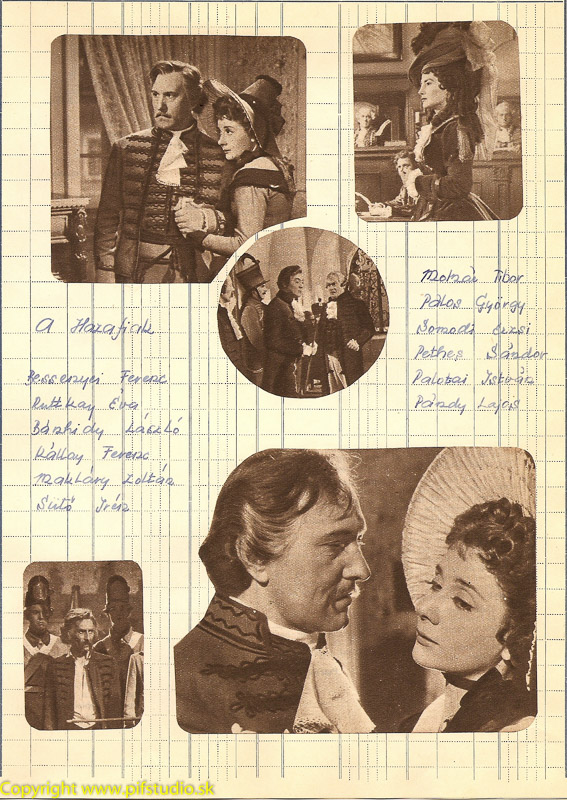 A Hazafiak
Bessenyei Ferenc
Ruttkay Éva
Bánhidy László
Kállay Ferenc
Makláry Zoltán
Sütő Irén
Molnár Tibor
Pálos György
Somodi Erzsi
Pethes Sándor
Palotai István
Párdy Lajos
Copyright www.pifstudio.sk